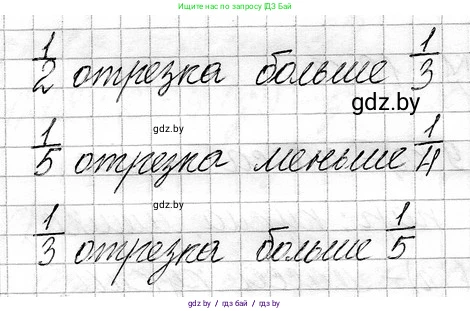 Получить больше материалов по запросу ГДЗ Бай
1/2 отрезка больше 1/3
gdz.by
gdz.by
1/5 отрезка меньше 1/4
gdz.by
1/3 отрезка больше 1/5
gdz.by / гдз бай / гдз.by